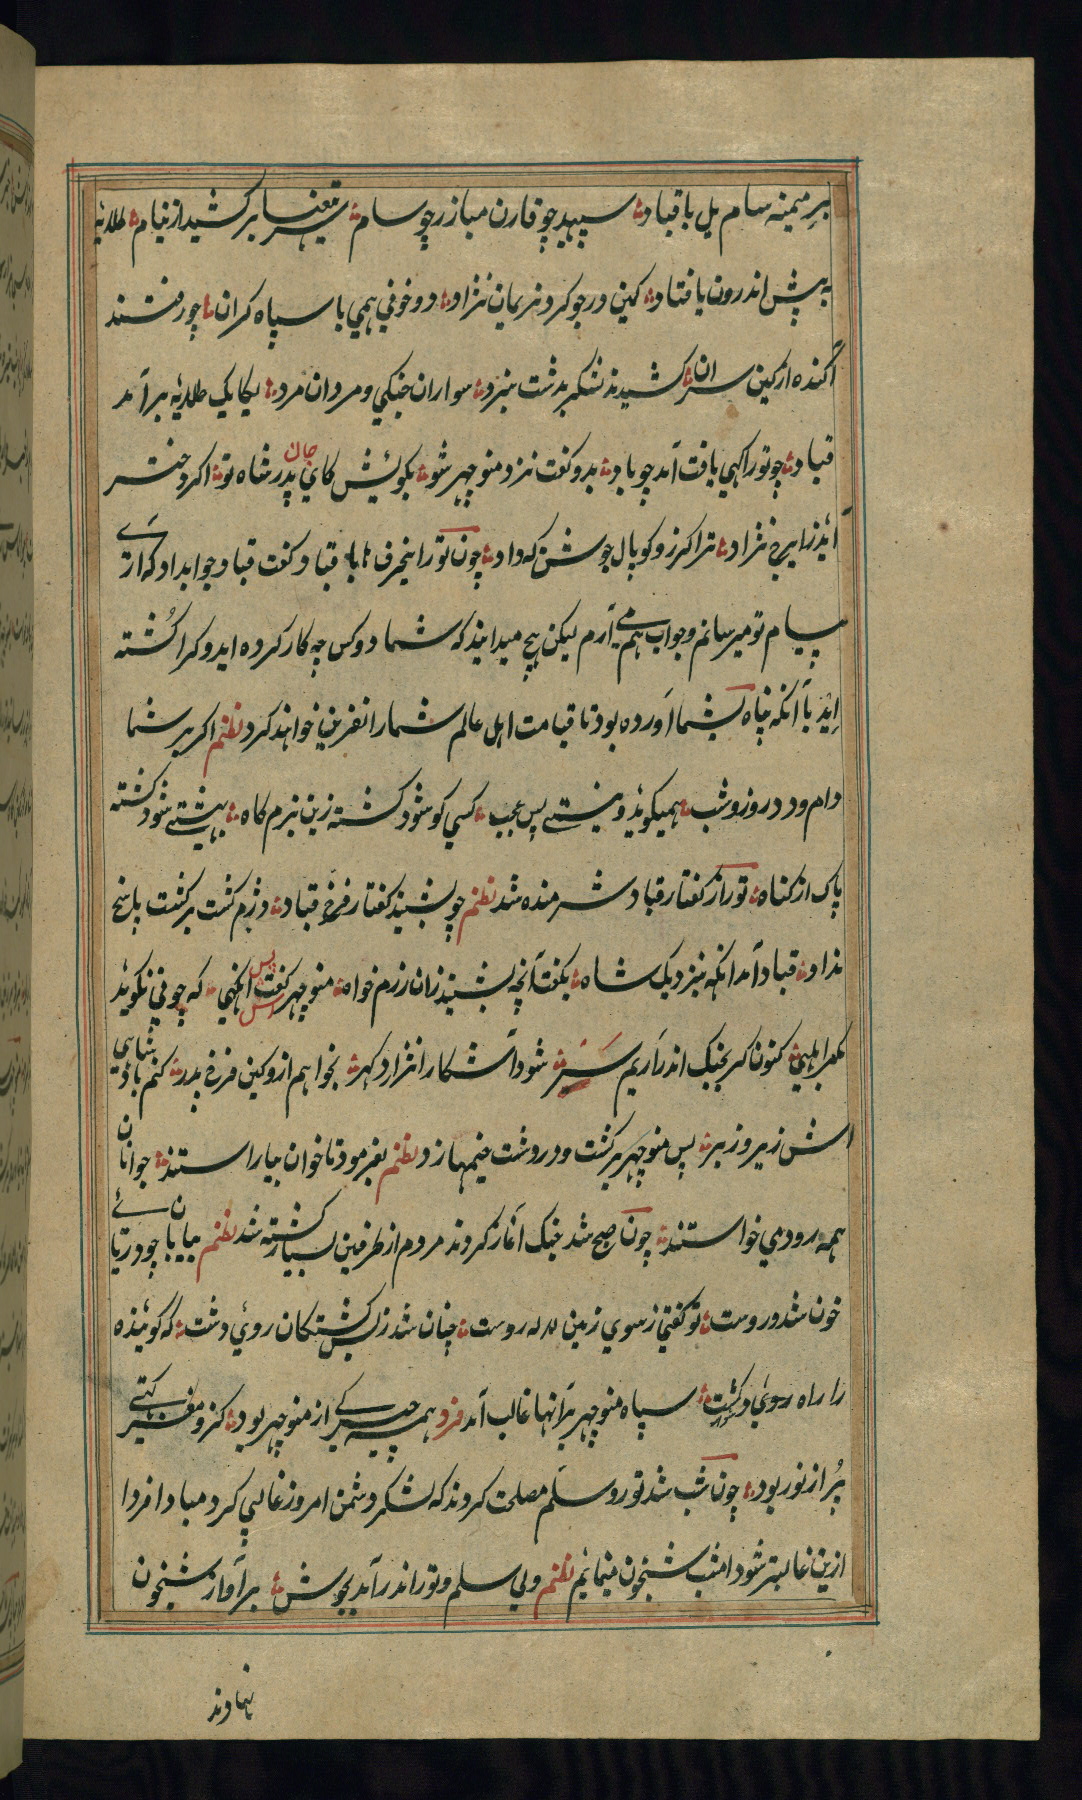 بر میمنه سام یل با قباد سپهبد چو قارن مبارز چو سام تیغها بر کشید از نیام طلایه
به پیش اندرون با قباد کمین ور چو کرد نریمان نژاد دو خونی همی با سپاه کران چو رفتند
آکنده از کین سران کشیدند لشکر بدشت نبرد سواران جنکی و مردان مرد یکایک طلایه بر آمد
قباد چو تور آکهی یافت آمد چو باد بدو کفت نزد منوچهر شو بکویش کای جان پدر شاه نو اکر دختر
آید ز ایرج نژاد ترا کرز و کوپال جوشن که داد چون تور اینحرف با قباد کفت قباد جوابداد که آری
پیام تو میرسانم و جواب هم می آرم لیکن هیچ میدانید که شما دو کس چه کار کرده اید و کرا کشته
اید با آنکه پناه بشما آورده بود تا قیامت اهل عالم شما را نفرین خواهند کرد نظم اکر بر شما
دام و دد روز و شب همیکوید و نیستی پس عجب کسی کو شود کشته زین رزمکاه بهشتی شود کشته
پاک از کناه تور از کفتار قباد شرمنده شد نظم چو بشنید کفتار فرخ قباد دژم کشت برکشت پاسخ
نداد قباد آمد انکه بنزدیک شاه بکفت آنچه بشنید زان رزم خواه منوچهر کفت پس انکهی که چونین نکوید
مکر ابلهی کنون کر بجنک اندر آریم سر شود آشکارا نژاد و کهر بخواهم ازو کین فرخ پدر کنم پادشاهی
اش زیر و زبر پس منوچهر برکشت و در دشت خیمها زد نظم بفرمود تا خوان بیاراستند جوانان
همه رود می خواستند چون صبح شد جنک آغاز کردند مردم از طرفین بسیار کشته شد نظم بیابان چو دریای
خون شد درست تو کفتی ز سوی زمین لاله رست چنان شد ز بس کشتکان روی دشت که کوینده
را راه روی و کشت سپاه منوچهر بر آنها غالب آمد فرد همه چیرکی از منوچهر بود کزو مغز کیتی
پر از نور بود چون شب شد تور و سلم مصلحت کردند که لشکر دشمن امروز غالبی کرد مبادا فردا
ازین غالبتر شود امشب شبخون مینمایم نظم دل سلم و تور اندر آمد بجوش بر آواز شبخون
نهادند